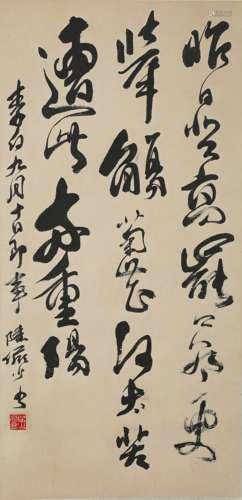 昨日登高罷今朝更
舉觴菊花何太苦
遭此兩重陽
李白九月十日即事 陸儼少書